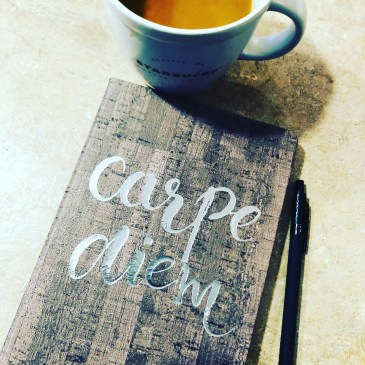 STARBUCKS
carpe
diem